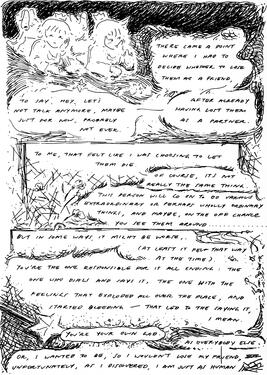 THERE CAME A POINT
WHERE I HAD TO
DECIDE WHETHER TO LOSE
THEM AS A FRIEND,
AFTER ALREADY
HAVING LOST THEM
AS A PARTNER.
TO SAY, HEY, LET'S
NOT TALK ANYMORE, MAYBE
JUST FOR NOW, PROBABLY
NOT EVER.
TO ME, THAT FELT LIKE I WAS CHOOSING TO LET
THEM DIE
OF COURSE, IT'S NOT
REALLY THE SAME THING.
THIS PERSON WILL GO ON TO DO VARIOUS
EXTRAORDINARY OR PERHAPS WHOLLY ORDINARY
THINGS, AND MAYBE, ON THE OFF CHANCE
YOU SEE THEM AROUND
BUT IN SOME WAYS, IT MIGHT BE WORSE,
(AT LEAST IT FELT THAT WAY
AT THE TIME)
YOU'RE THE ONE RESPONSIBLE FOR IT ALL ENDING: THE
ONE WHO DIALS AND SAYS IT, THE ONE WITH THE
FEELINGS THAT EXPLODED ALL OVER THE PLACE, AND
STARTED BLEEDING — THAT LED TO THE SAYING IT,
I MEAN.
YOU'RE YOUR OWN GOD
AS EVERYBODY ELSE.
OR, I WANTED TO BE, SO I WOULDN'T LOSE MY FRIEND,
UNFORTUNATELY, AS I DISCOVERED, I AM JUST AS HUMAN